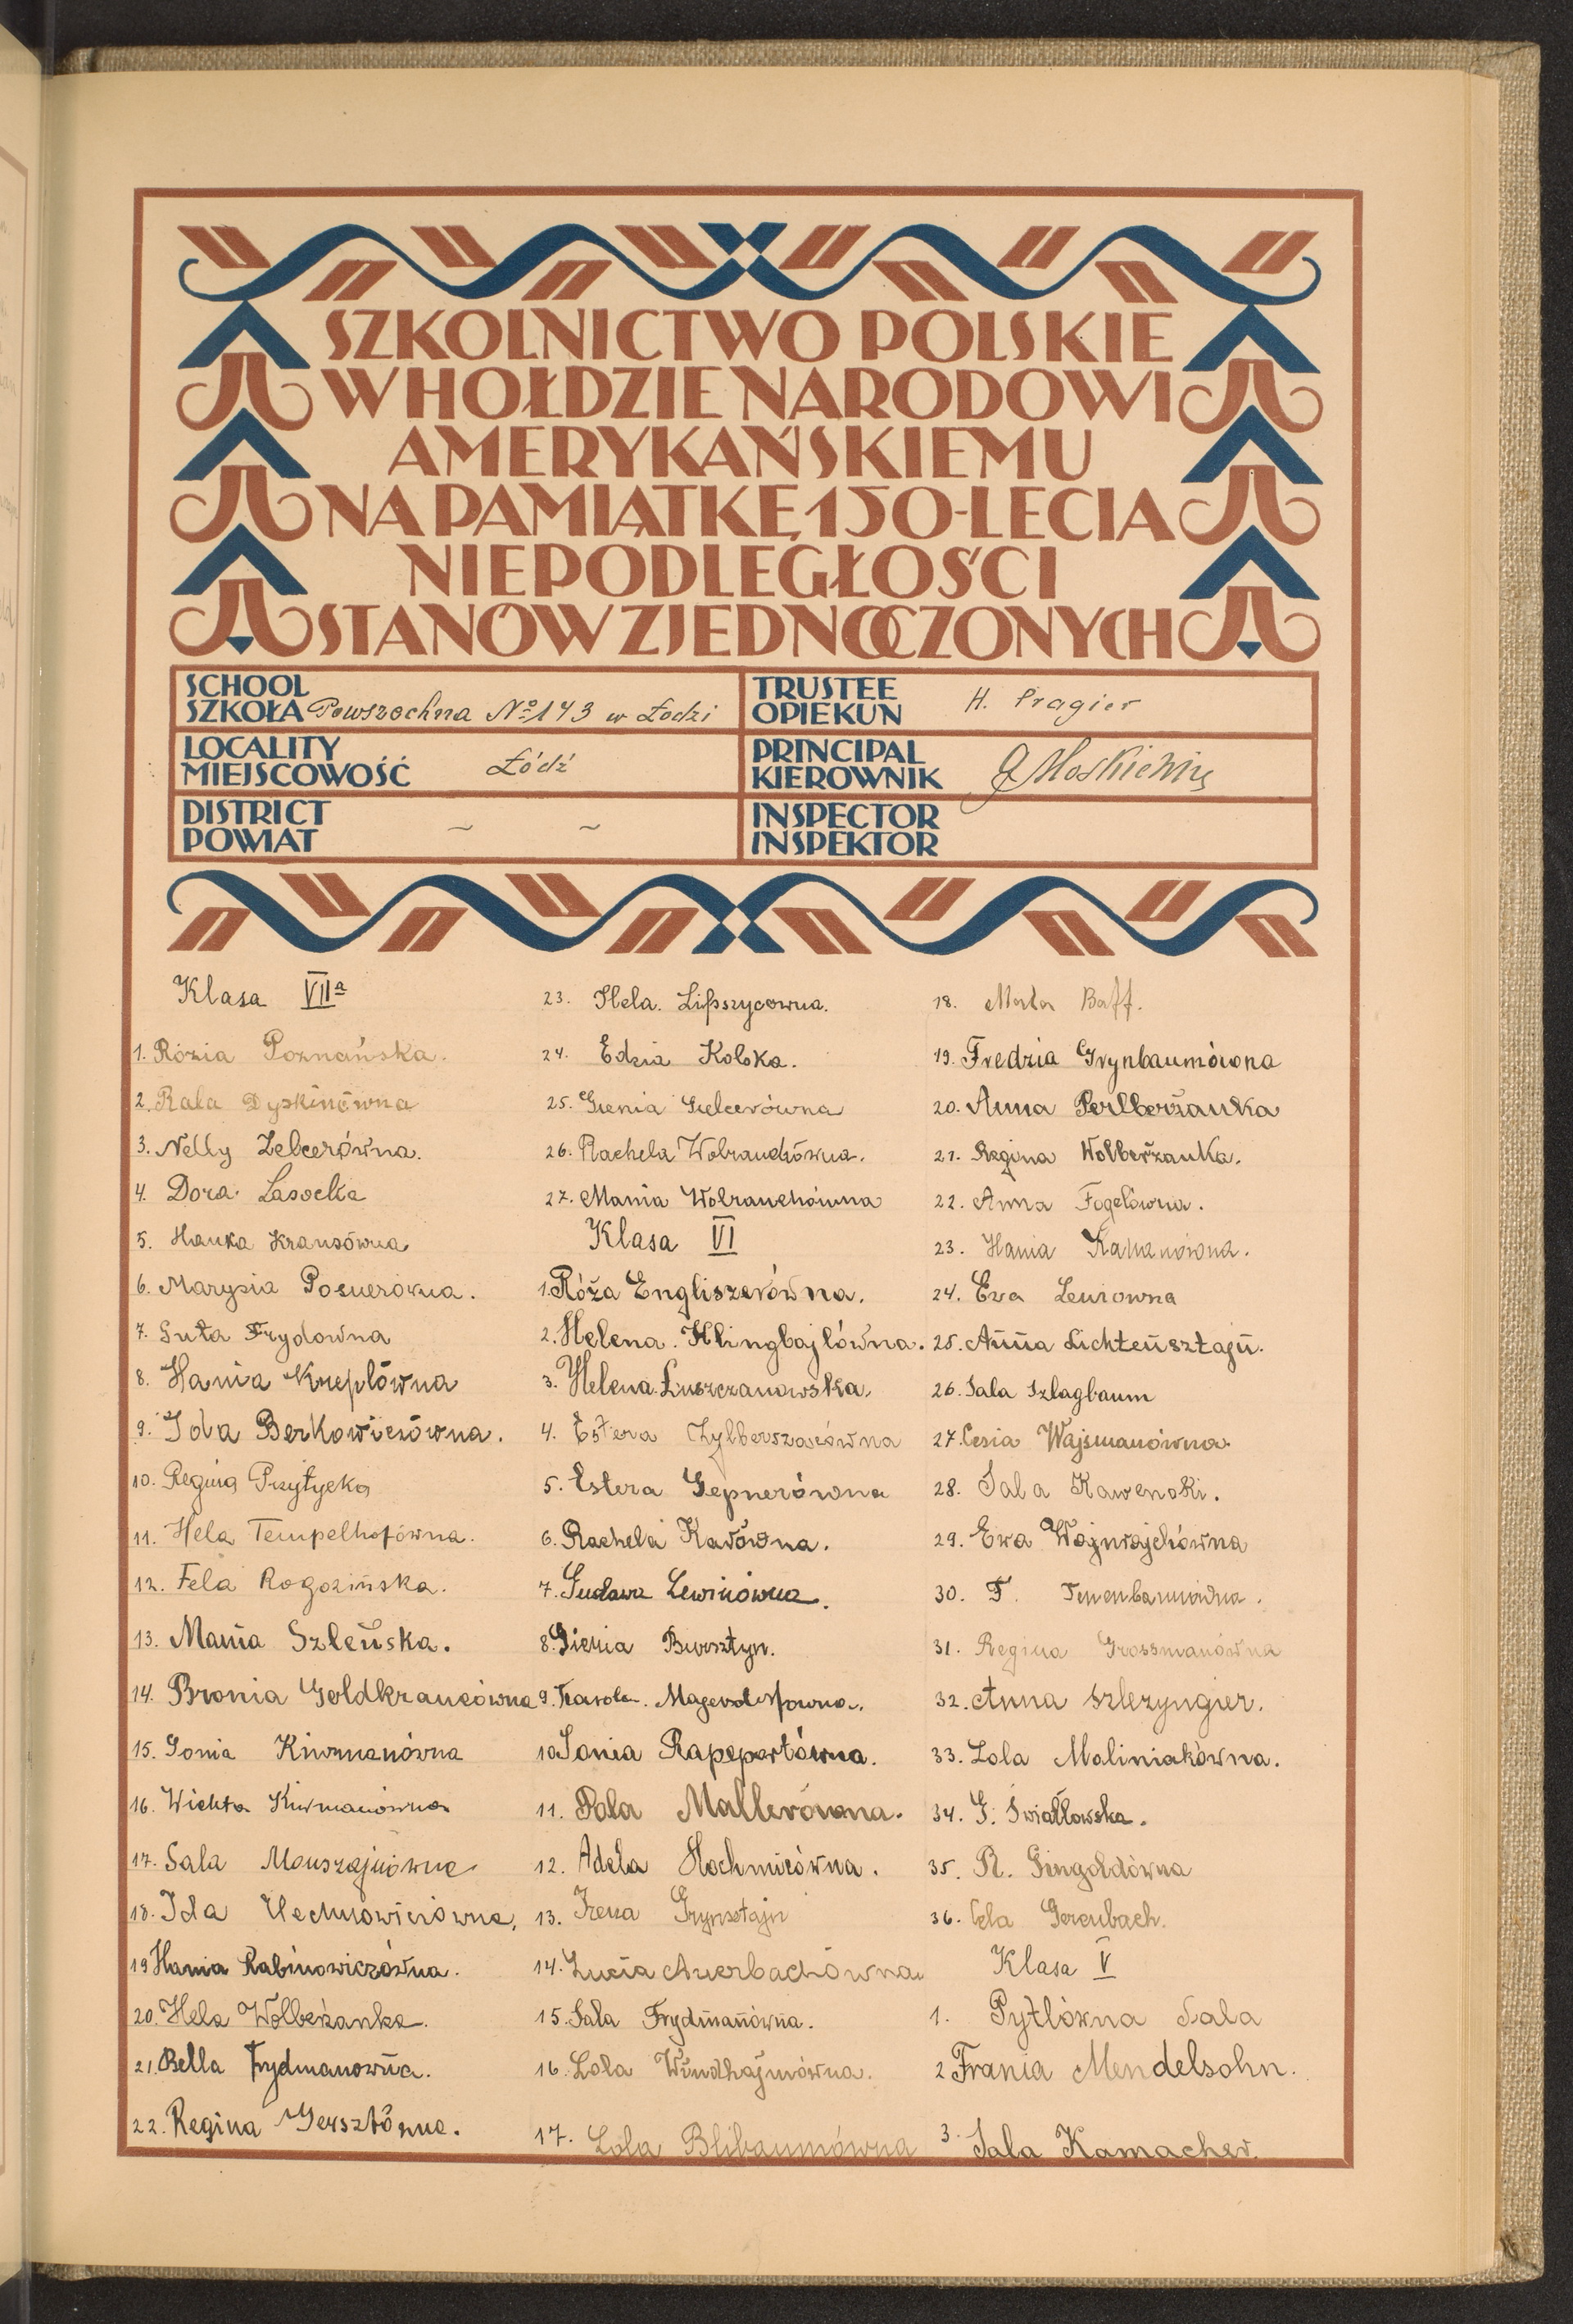 SZKOLNICTWO POLSKIE
W HOŁDZIE NARODOWI
AMERYKAŃSKIEMU
NA PAMIĄTKĘ 150-LECIA
NIEPODLEGŁOŚCI
STANÓW ZJEDNOCZONYCH
SCHOOL
SZKOŁA Powszechna № 143 w Łodzi
TRUSTEE
OPIEKUN H. Pragier
LOCALITY
MIEJSCOWOŚĆ Łódź
PRINCIPAL
KIEROWNIK
DISTRICT
POWIAT ~ ~
INSPECTOR
INSPEKTOR
Klasa VIIa
1. Rózia Poznańska.
2. Rala Dyskinówna
3. Nelly Zelcerówna.
4. Dora Lasocka
5. Hanka Krausówna
6. Marysia Posnerówna.
7. Guta Frydówna
8. Hania Kreplówna
9. Ida Berkowiczówna.
10. Regina Przytycka
11. Hela Tempelhofówna.
12. Fela Rogozińska.
13. Mania Szleńska.
14. Bronia Goldkrancówna
15. Sonia Kirmanówna
16. Wichta Kirmanówna
17. Sala Monszajnówna
18. Ida Nechmowiczówna.
19 Hania Rabinowiczówna.
20. Hela Wolbeżanka.
21. Bella Frydmanówna.
22. Regina Gersztówna.
23. Hela. Lifszycowna.
24. Edzia Kolska.
25. Genia Gelcerówna
26. Rachela Wobrandżówna.
27. Mania Wolrauchówna
Klasa VI
1. Róża Engliszerówna.
2. Helena. Klingbajlówna.
3. Helena. Łuszczanowska.
4. Estera Zylberszacówna
5. Estera Gepnerówna
6. Rachela Kawówna.
7. Gustawa Lewinówna.
8. Gienia Bursztyn.
9. Karola. Magendesfowna.
10. Sonia Rapeportówna.
11. Pola Mallerówna.
12. Adela Hochmicówna.
13. Irena Grynsztajn
14. Lucia Auerbachówna
15. Sala Frydmanówna.
16. Lola Windhajmówna.
17. Lola Blibaumówna
18. Marta Baff.
19. Fredzia Grynbaumówna
20. Anna Perlberżanka
21. Regina Wolberżanka.
22. Anna Fogelówna.
23. Hania Kahanówna.
24. Ewa Lewiowna
25. Anna Lichtensztajn.
26. Sala Szlagbaum
27. Cesia Wajsmanówna.
28. Sala Kawenoki.
29. Ewa Wajnrajchówna
30. F. Tenenbaumówna.
31. Regina Grossmanówna
32. Anna Szlezyngier.
33. Lola Maliniakówna.
34. G. Światłowska.
35. R. Gingoldówna
36. Cela Gerenbach.
Klasa V
1. Pytlówna Sala
2 Frania Mendelsohn.
3. Sala Kamacher.